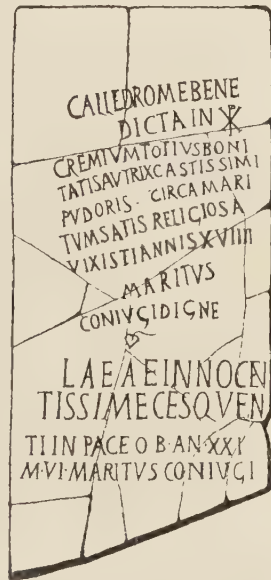 CALLEDROMEBENE
DICTA IN ☧
CREMIVMTOTIVSBONI
TATISAVTRIXCASTISSIMI
PVDORIS · CIRCAMARI
TVMSATIS RELIGIOSA
VIXISTIANNISXVIIII
MARITVS
CONIVGIDIGNE
LAEAEINNOCEN
TISSIMECESQVEN
TIINPACE OB·AN·XXI
M·VI·MARITVS CONIVGI